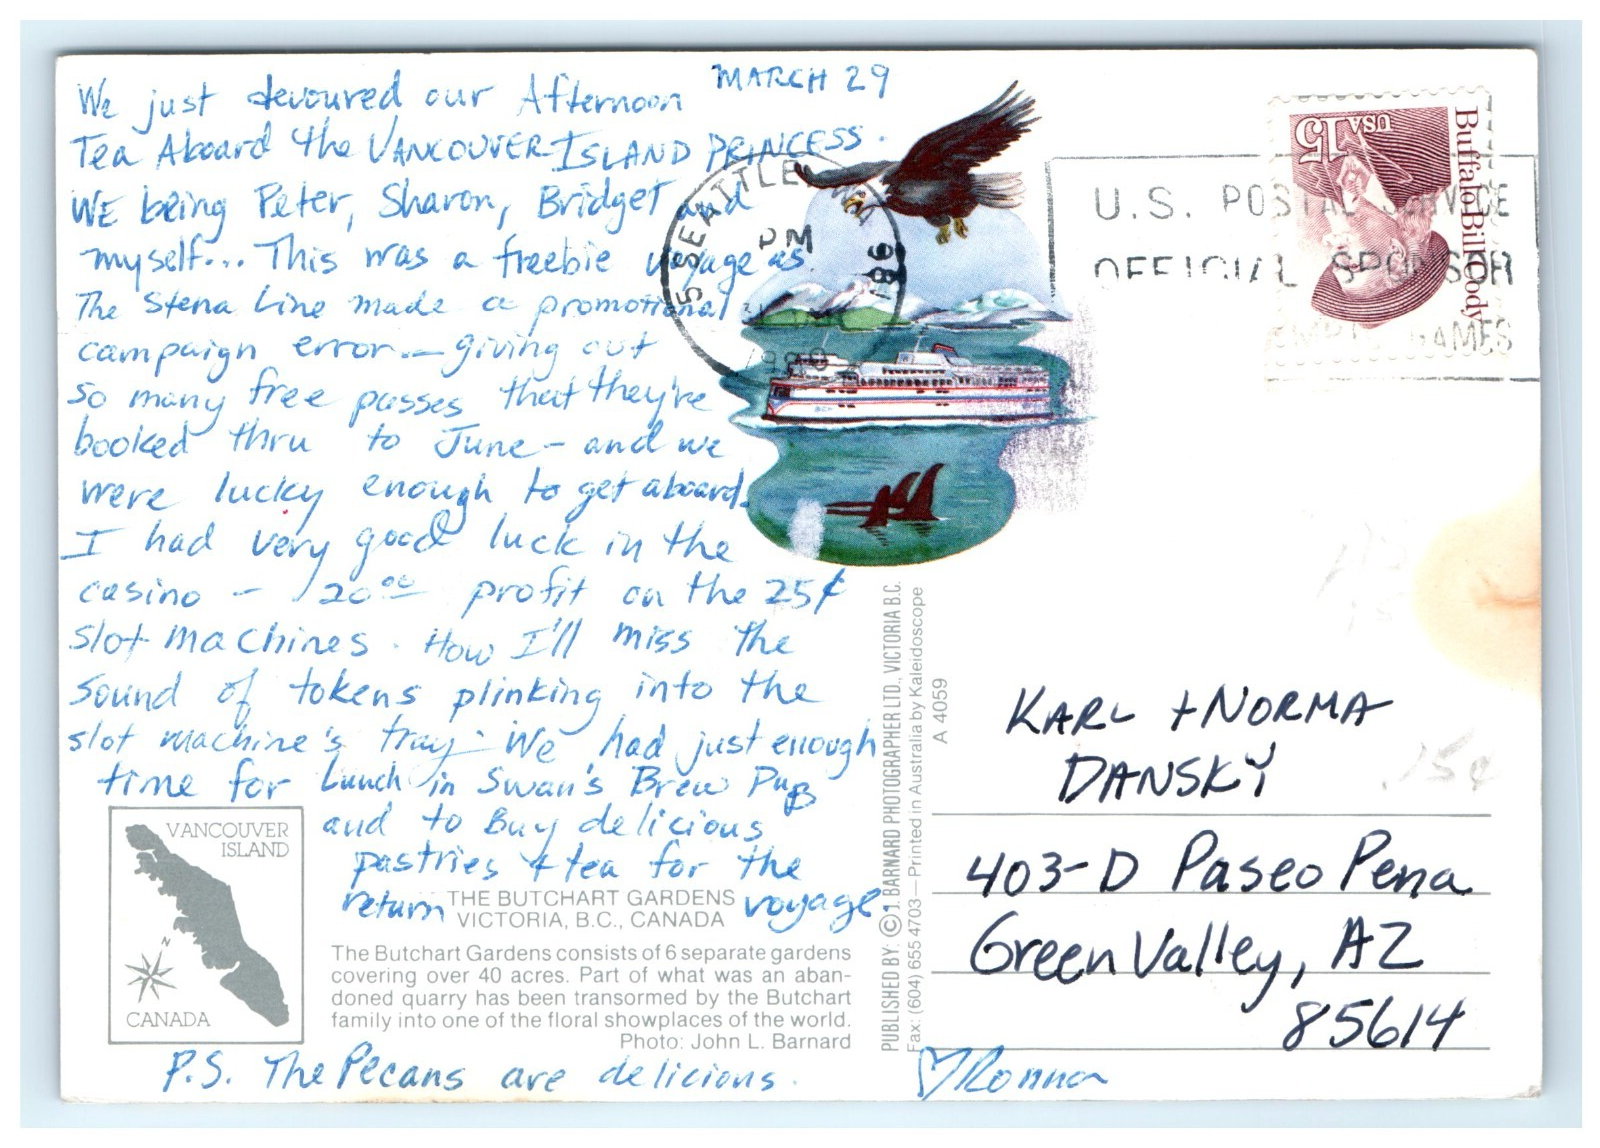 MARCH 29
We just devoured our Afternoon
Tea Aboard the VANCOUVER ISLAND PRINCESS.
WE being Peter, Sharon, Bridget and
myself... This was a freebie voyage as
The Stena Line made a promotional
campaign error — giving out
so many free passes that they're
booked thru to June - and we
were lucky enough to get aboard.
I had very good luck in the
casino - 120.00 profit on the 25¢
slot machines. How I'll miss the
sound of tokens plinking into the
slot machine's tray. We had just enough
time for Lunch in Swan's Brew Pub
and to Buy delicious
pastries + tea for the
return voyage.
P.S. The Pecans are delicious.
♡ Ronna
VANCOUVER
ISLAND
N
CANADA
THE BUTCHART GARDENS
VICTORIA, B.C., CANADA
The Butchart Gardens consists of 6 separate gardens
covering over 40 acres. Part of what was an aban-
doned quarry has been transormed by the Butchart
family into one of the floral showplaces of the world.
Photo: John L. Barnard
PUBLISHED BY: © J. BARNARD PHOTOGRAPHER LTD., VICTORIA B.C.
Fax: (604) 655 4703 — Printed in Australia by Kaleidoscope
A 4059
SEATTLE, WA
PM
1990
981
U.S. POSTAL SERVICE
OFFICIAL SPONSOR
GAMES
Buffalo Bill Cody
USA 15
KARL + NORMA
DANSKY
403-D Paseo Pena
Green Valley, AZ
85614
.15¢